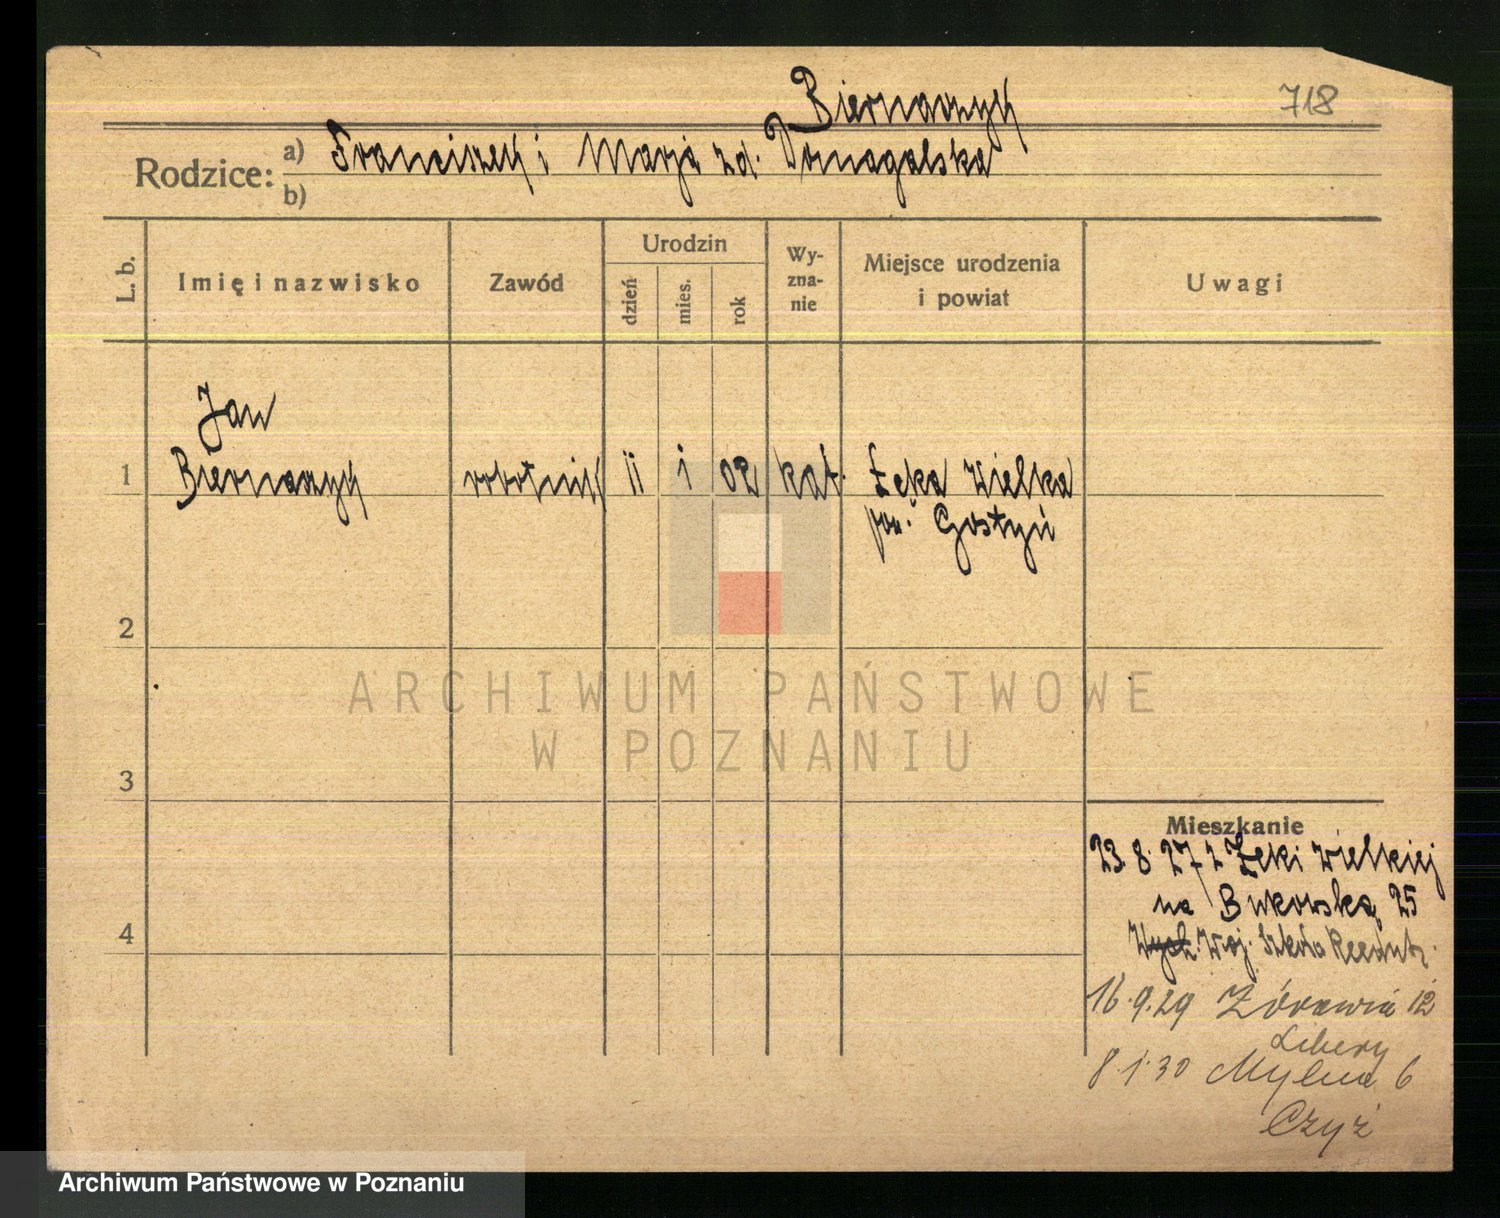 Biernaczyk
718
Rodzice: a) Franciszek i Marja zd. Domagalska
b)
L. b.
Imię i nazwisko
Zawód
Urodzin
dzień
mies.
rok
Wy-
zna-
nie
Miejsce urodzenia
i powiat
Uwagi
Jan
1 Biernaczyk robotnik 11 1 02 kat. Łęka Wielka
pow. Gostyń
2
3
4
Mieszkanie
23. 8. 27 z Łęki Wielkiej
na Bukowską 25
Woj. Szkoła
16.9.29 Żórawia 12
Libery
8.1.30 Mylna 6
Czyż
ARCHIWUM PAŃSTWOWE
W POZNANIU
Archiwum Państwowe w Poznaniu